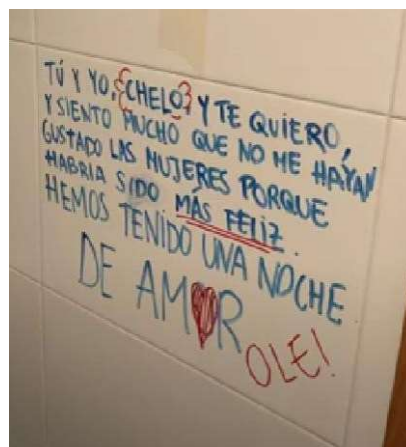 TÚ Y YO, ¿CHELO? Y TE QUIERO,
Y SIENTO MUCHO QUE NO ME HAYAN
GUSTADO LAS MUJERES PORQUE
HABRIA SIDO MÁS FELIZ.
HEMOS TENIDO UNA NOCHE
DE AM♥R
OLE!